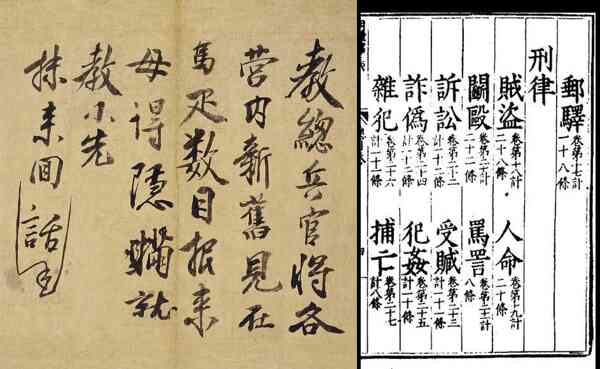 教總兵官將各
營内新舊見在
馬疋数目报来
毋得隱瞞就
教小先
抹来回話
郵驛 卷第十七計一十八條
刑律
賊盜 卷第十八計二十八條 人命 卷第十九計二十條
鬬毆 卷第二十計二十二條 罵詈 卷第二十一計八條
訴訟 卷第二十二計一十二條 受贓 卷第二十三計一十一條
詐偽 卷第二十四計一十二條 犯姦 卷第二十五計一十條
雜犯 卷第二十六計一十一條 捕亡 卷第二十七計八條